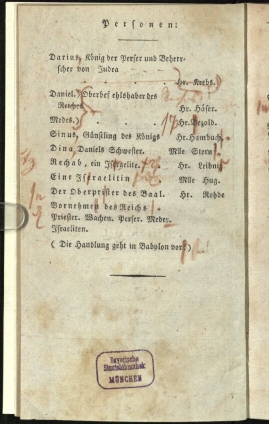 Personen:
Darius, König der Perser und Beherr-
scher von Judea
Hr. Krebs.
Daniel.) Oberbefehlshaber des
Reiches
Hr. Häser.
Medes.) Hr. Pezold.
Sinus, Günstling des Königs Hr. Hambuch.
Dina, Daniels Schwester. Mlle Stern
Rechab, ein Israelite. Hr. Leibnit
Eine Israelitin Mlle Hug.
Der Oberpriester des Baal. Hr. Rohde
Vornehmen des Reichs
Priester. Wachen. Perser. Meder.
Israeliten.
( Die Handlung geht in Babylon vor )
Bayerische
Staatsbibliothek
MÜNCHEN